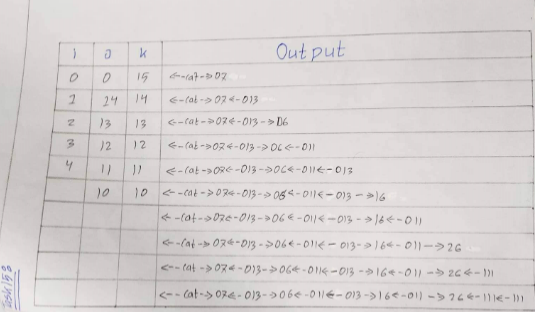 i j k Output
0 0 15 <--cat->02
1 14 14 <--cat->02<-013
2 13 13 <--cat->02<-013->06
3 12 12 <--cat->02<-013->06<-011
4 11 11 <--cat->02<-013->06<-011<-013
10 10 <--cat->02<-013->06<-011<-013-->16
<--cat->02<-013->06<-011<-013->16<-011
<--cat->02<-013->06<-011<-013->16<-011->26
<--cat->02<-013->06<-011<-013->16<-011->26<-111
<--cat->02<-013->06<-011<-013->16<-011->26<-111<-111
Task153